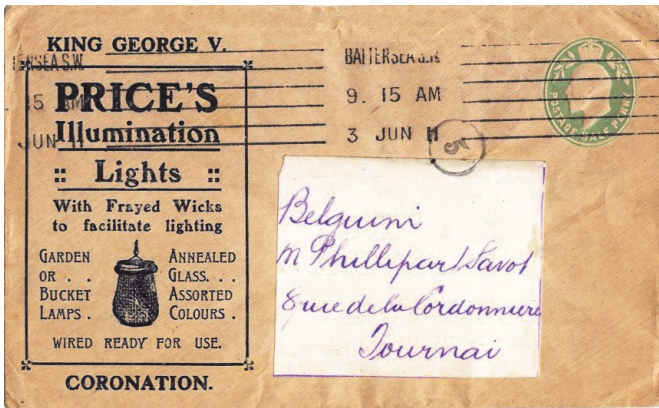 KING GEORGE V.
PRICE'S
Illumination
:: Lights ::
With Frayed Wicks
to facilitate lighting
GARDEN
OR . .
BUCKET
LAMPS .
ANNEALED
GLASS. . .
ASSORTED
COLOURS .
WIRED READY FOR USE.
CORONATION.
15 AM
JUN 11
BATTERSEA S.W.
9. 15 AM
3 JUN 11
5
POSTAGE HALF PENNY
Belguim
M Phillipart Savot
8 rue de la Cordonniere
Tournai